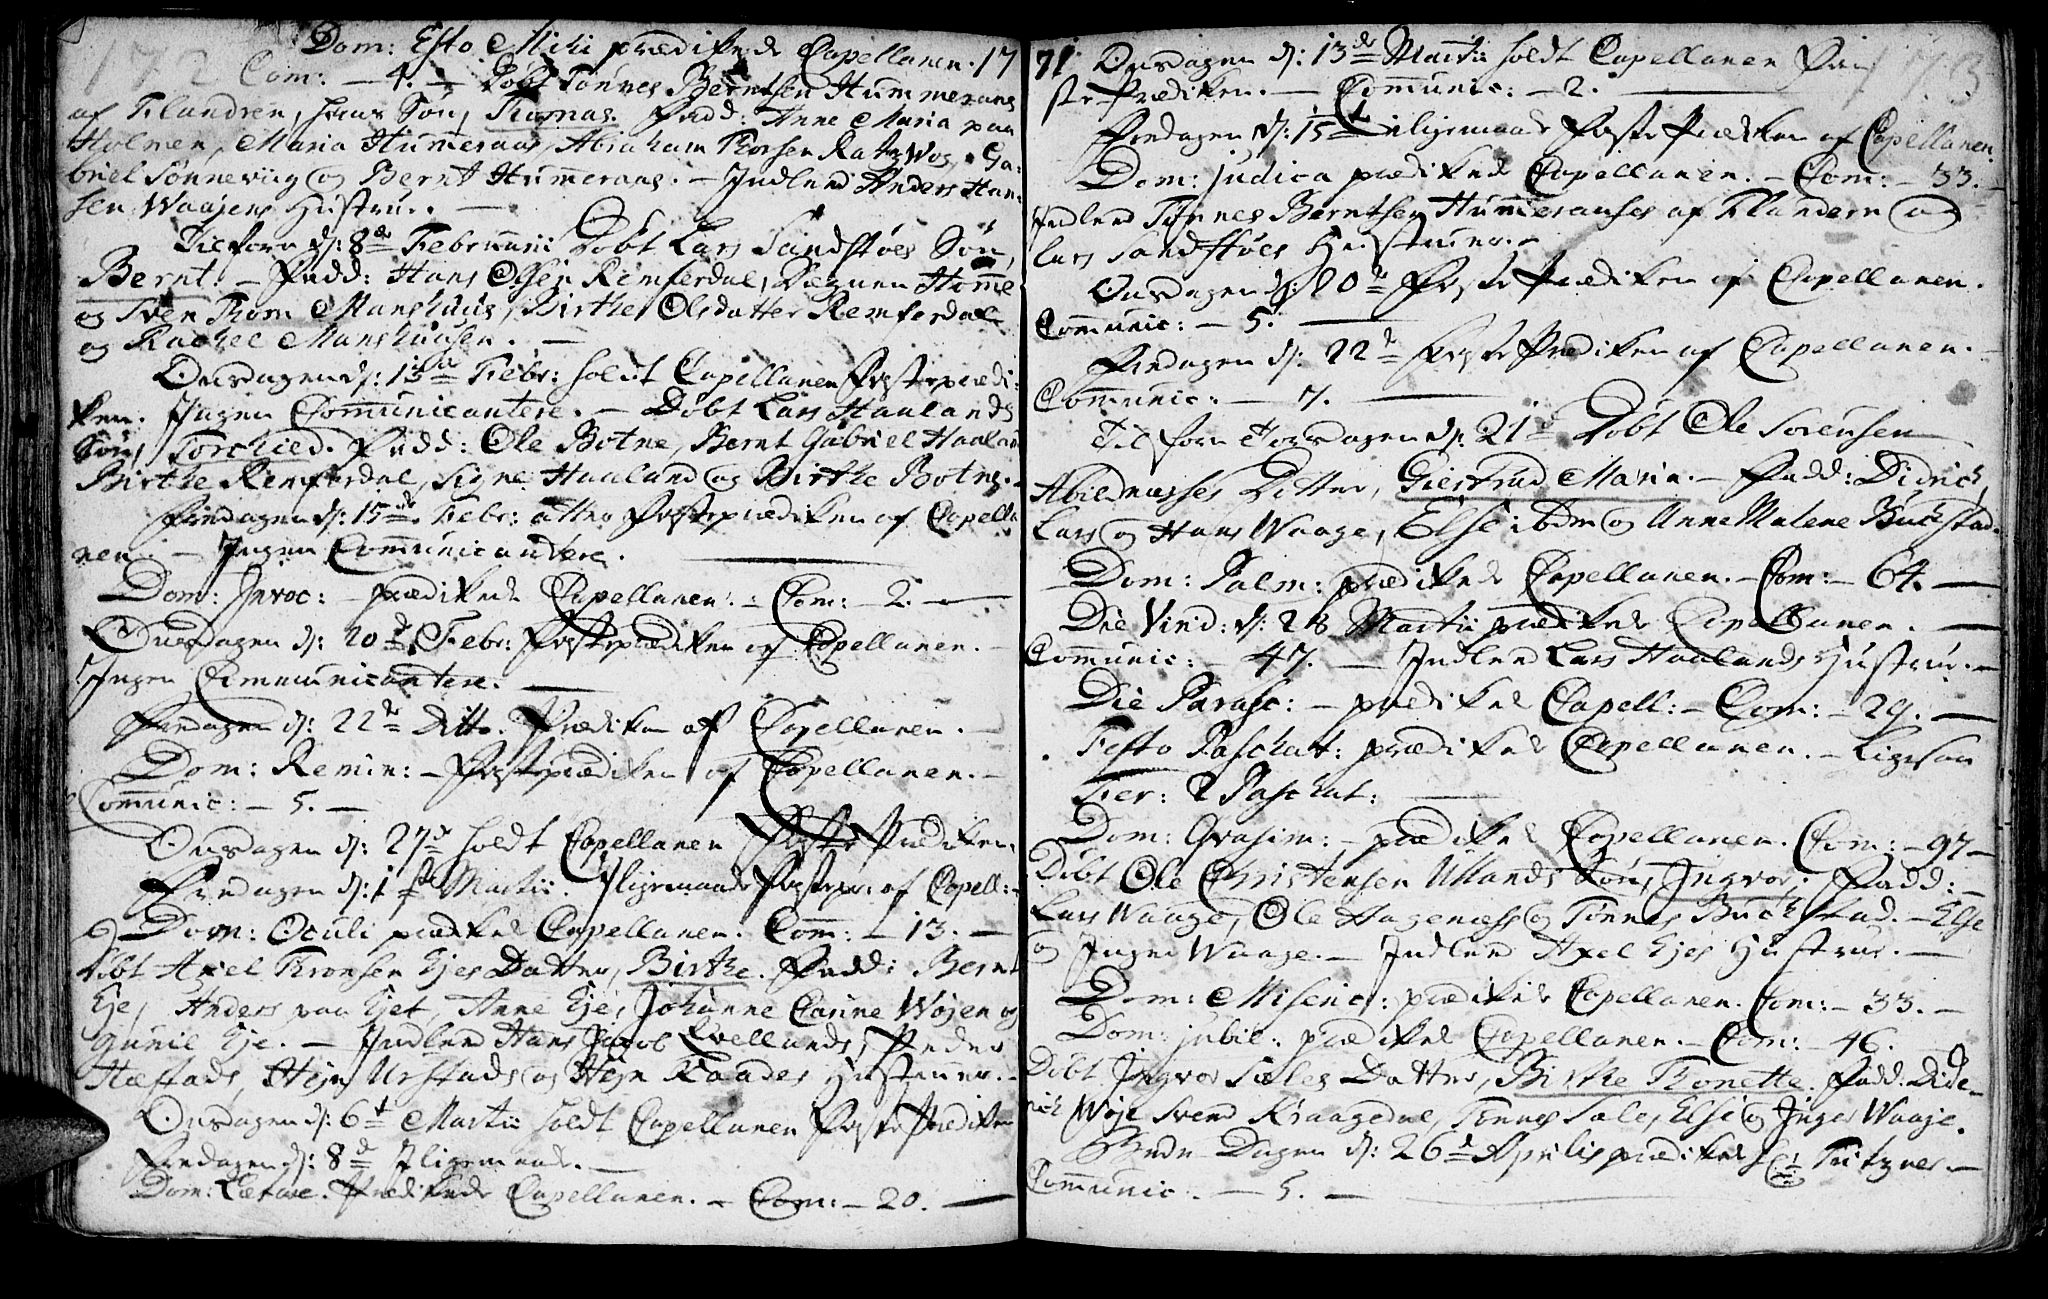 172 Dom: Esto Mihi prædikede Capellanen. 17
Com: — 4. — Døbt Tønnes Berntsen Hummeraas
af Flandren, hans Søn, Thomas. Fadd: Anne Maria paa
Holmen, Maria Hummeraas, Abraham Thorsen Ratz Wog, Ga-
briel Sønneviig og Bernt Hummeraas. — Indled Anders Han-
sen Waajens Hustru. —
Tilforn d: 8de Februarii Døbt Lars Sandstøes Søn,
Bernt. — Fadd: Hans Olsen Remserdal, Homme
og Sven Thom Manshuus, Birthe Olsdatter Remserdal
og Rachel Manshuusen. —
Onsdagen d: 13de Febr: holdt Capellanen Fasteprædi-
ken. Ingen Communicantere. — Døbt Lars Haalands
Søn, Torchied. Fadd: Ole Botne, Bernt Gabriel Haaland
Birthe Remserdal, Signe Haaland og Birthe Botne. —
Fredagen d: 15de Febr: atter Fasteprædiken af Capella-
nen. — Ingen Communicantere. —
Dom: Invoc: — prædikede Capellanen. — Com: — 2. —
Onsdagen d: 20de Febr: Fasteprædiken af Capellanen. —
Ingen Communicantere. —
Fredagen d: 22de Ditto. Prædiken af Capellanen. —
Dom: Remin: — Fasteprædiken af Capellanen. —
Communic: — 5. —
Onsdagen d: 27de holdt Capellanen Faste Prædiken.
Fredagen d: 1ste Martii. Iligemaade Fastepr: af Capell: —
Dom: Oculi prædiked Capellanen. Com: — 13. —
Døbt Axel Thronsen Ejes Datter, Birthe. Fadd: Bernt
Eje, Anders paa Ejet, Anne Eje, Johanne Carine Wøjen og
Gunil Eje. — Indled Hans Jacob Qvellands, Peder
Hæstads, Hejn Urstads og Hejn Raades Hustruer. —
Onsdagen d: 6te Martii holdt Capellanen Faste Prædiken
Fredagen d: 8de Iligemaade. —
Dom: Lætare. Prædikede Capellanen. — Com: — 20. —
71. Onsdagen d: 13de Martii holdt Capellanen Fa- 173
ste Prædiken. — Communic: — 2. —
Fredagen d: 15de Iligemaade Faste Prædiken af Capellanen.
Dom: Judica prædikede Capellanen. — Com: — 33. —
Indled Tønnes Berntsen Hummeraases af Flandern og
Lars Sandstøes Hustruer. —
Onsdagen d: 20de Faste Prædiken af Capellanen.
Communic: — 5. —
Fredagen d: 22de Faste Prædiken af Capellanen. —
Communic: — 7. —
Tilforn Torsdagen d: 21de Døbt Ole Sørensen
Abildnæsses Datter, Giertrud Maria. — Fadd: Didrich,
Lars og Hans Waage, Else ibdm og Anne Malene Buchstad.
Dom: Palm: prædikede Capellanen. — Com: — 64. —
Die Virid: d: 28 Martii prædiked Capellanen. —
Communic: — 47. — Indled Lars Haalands Hustrue. —
Die Parasc: — prædiked Capell: — Com: — 29. —
Festo Paschat: prædikede Capellanen. — Ligesaa
Fer: 2 Paschat: —
Dom: Qvasim: — prædiked Capellanen. Com: — 97 —
Døbt Ole Christensen Ullands Søn, Ingvor. Fadd: —
Lars Waage, Ole Hagenæss og Tønnes Buchstad. — Else
og Inger Waage. — Indled Axel Ejes Hustrue. —
Dom: Miseric: prædiked Capellanen. Com: — 33. —
Dom: Jubil: prædiked Capellanen. — Com: — 46.
Døbt Ingvor Sæles Datter, Birthe Thonette. Fadd: Dide-
rich Wøje Svend Kraagedal, Tønnes Sæle, Else og Inger Waaje.
Bede Dagen d: 26de Aprilis prædiked Hr Fritzner. —
Communic: — 5. —